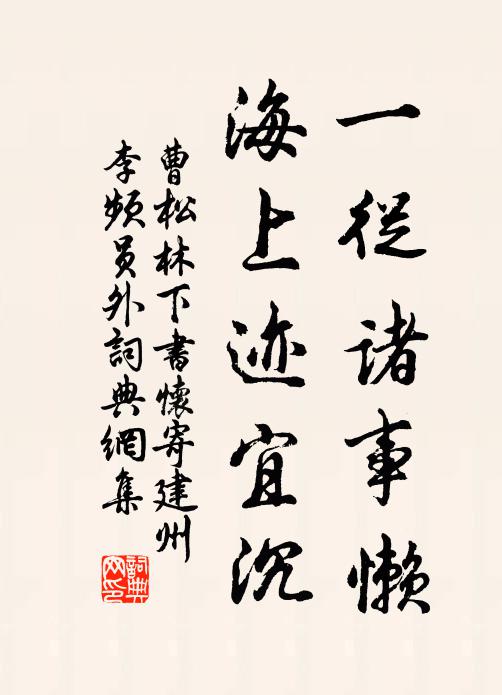 一從諸事懶
海上迹宜沉
曹松林下書懷寄建州
李頻員外詞典網集
詞典網印